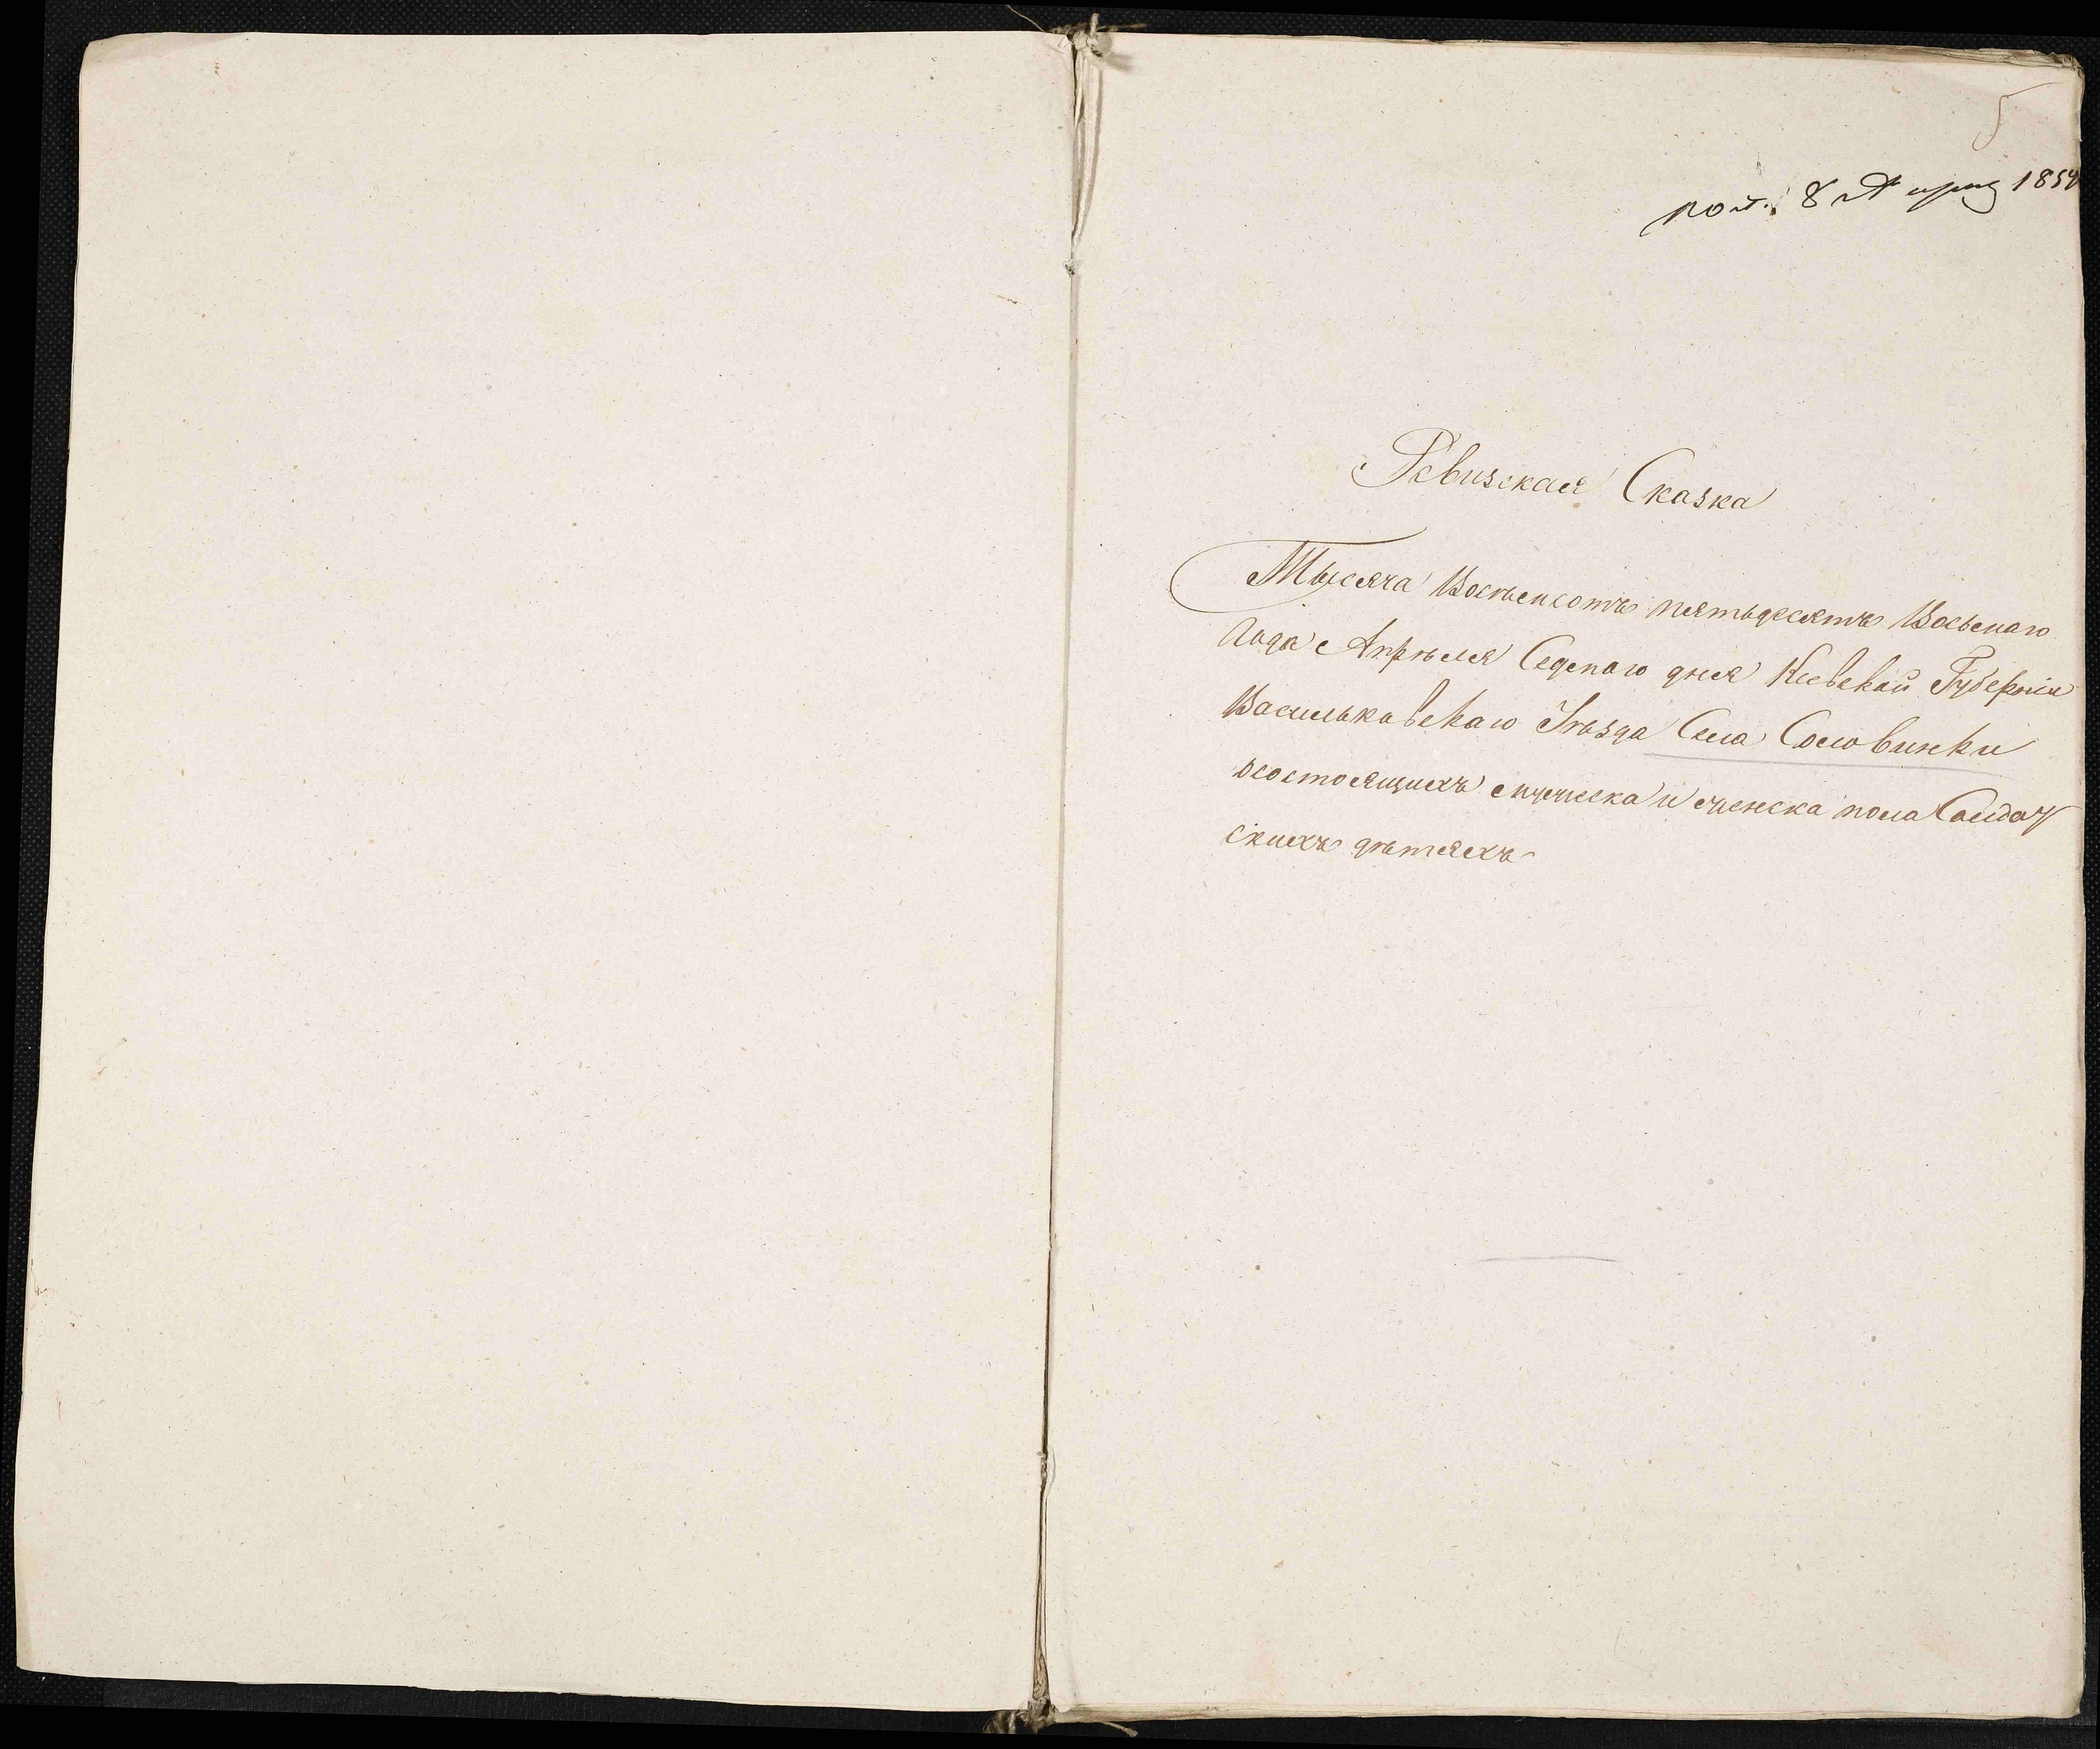 5
пол. 8 Апрѣля 1858
Ревизская Сказка
Тысяча Восѣмсотъ пятьдесятъ Восьмаго
Года Апрѣля Седмаго дня Кіевской Губерніи
Васильковскаго Уѣзда Села Соловинки
осостоящихъ мужеска и женска пола Солдат
скихъ дѣтяхъ